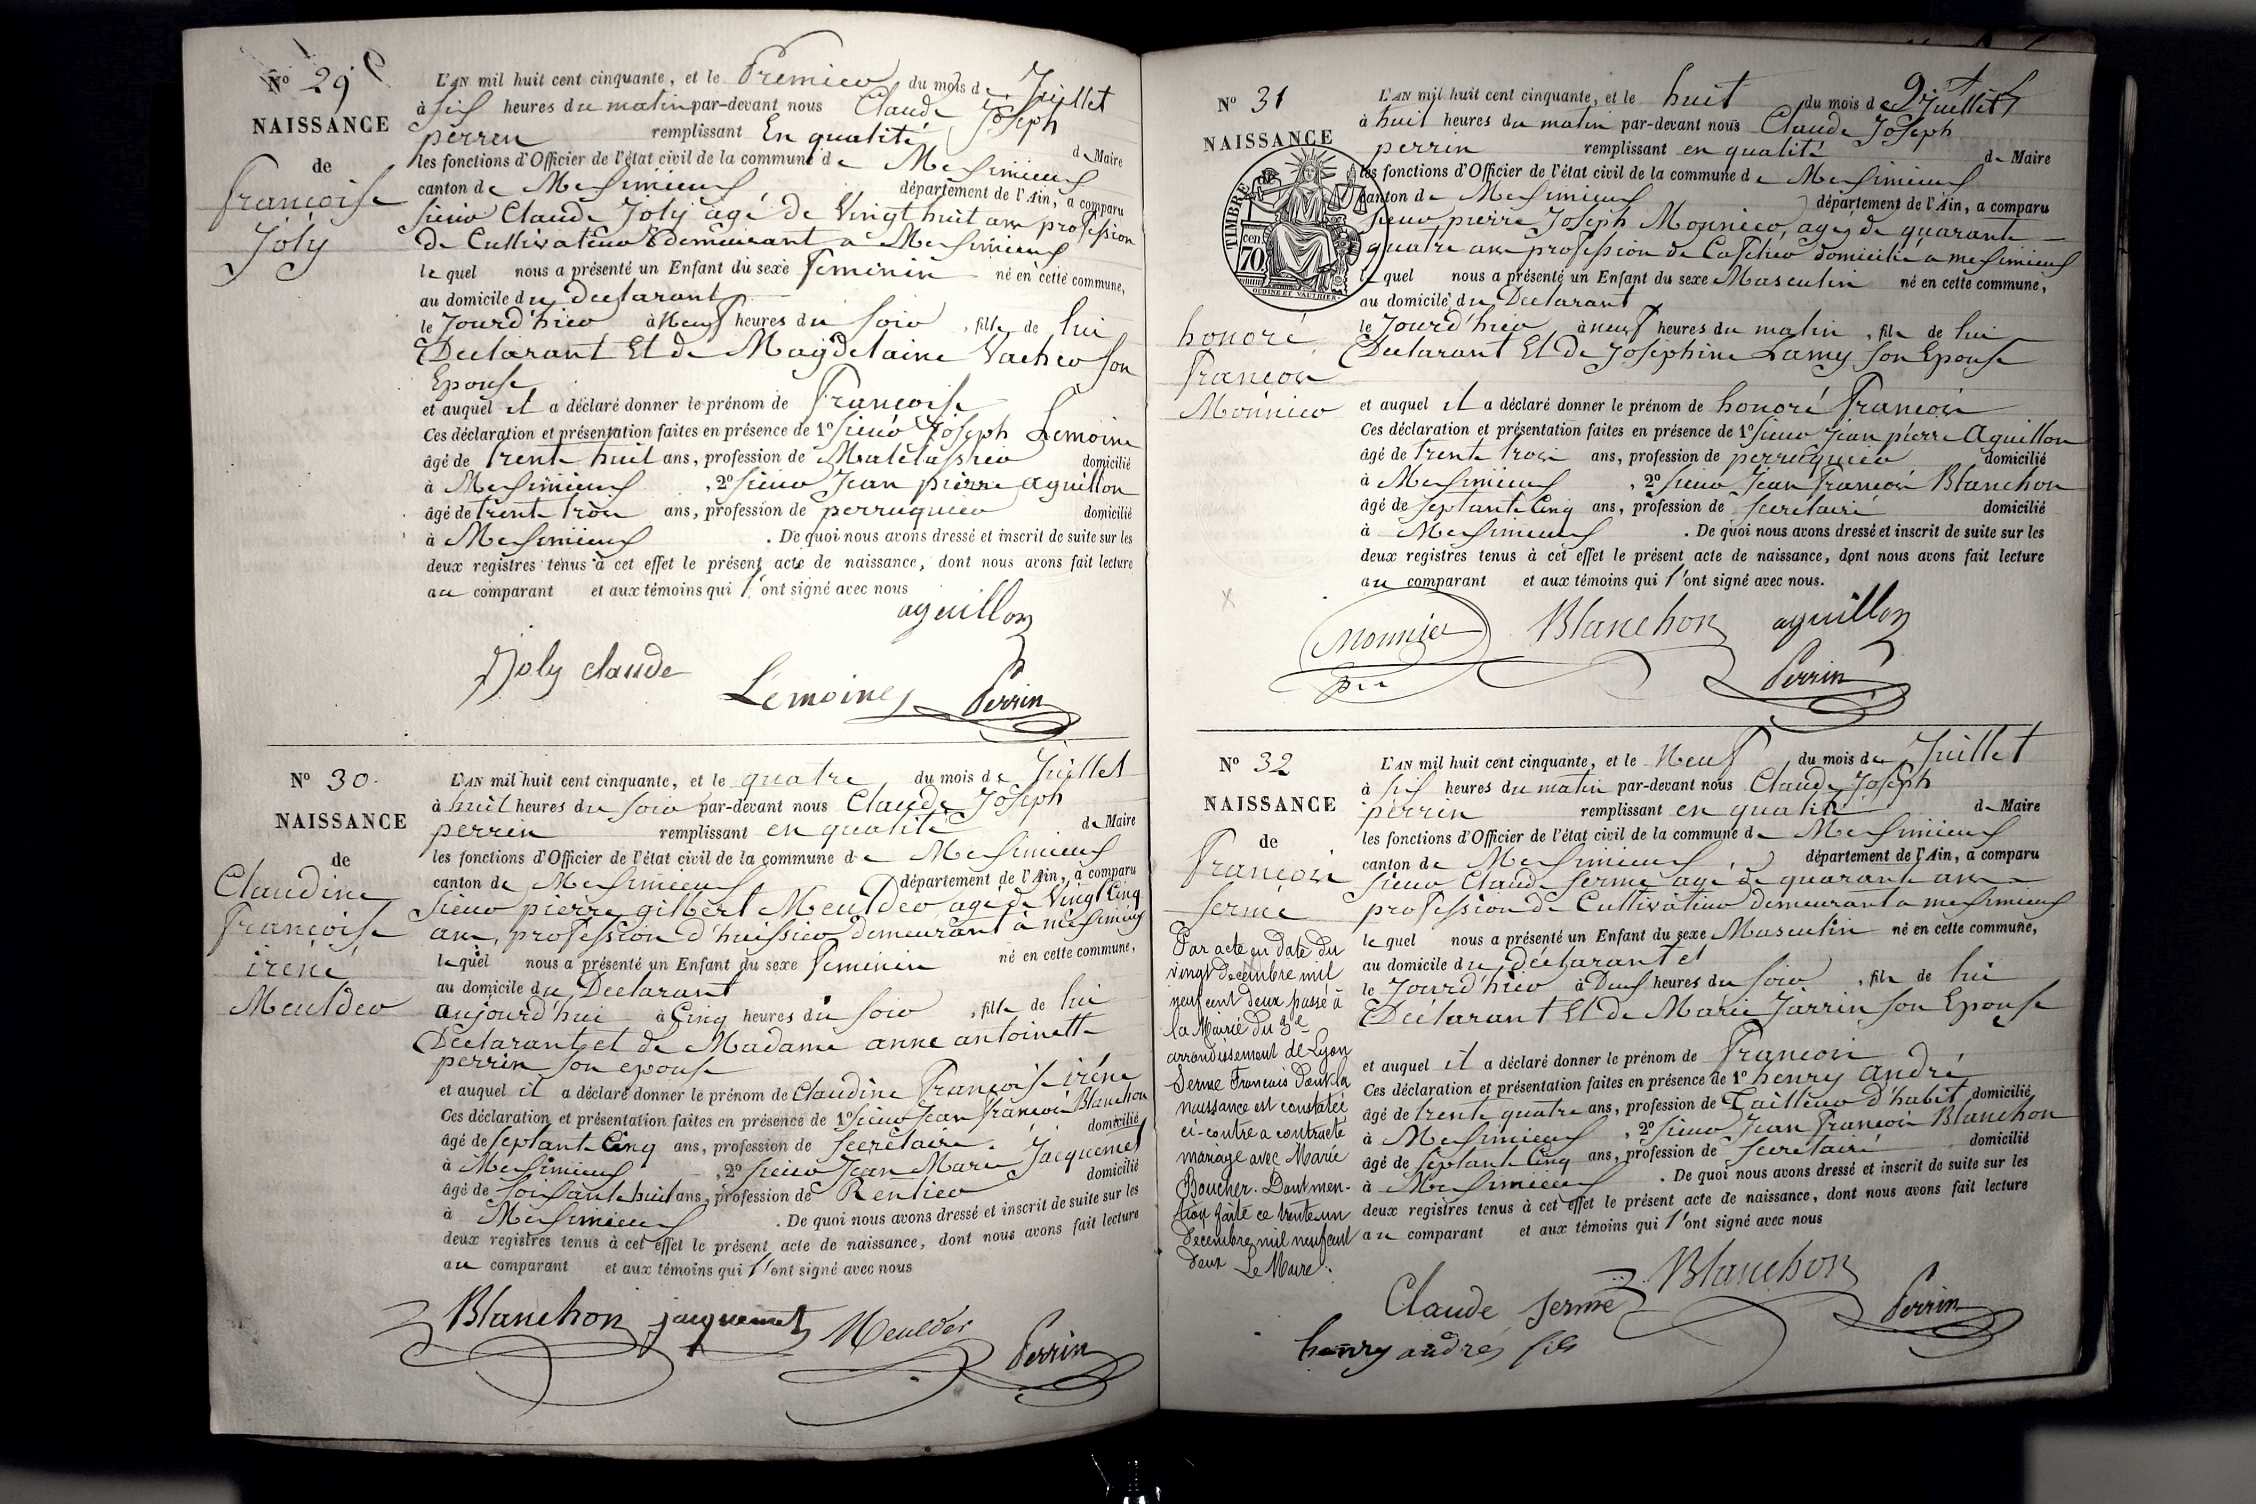 N° 29
NAISSANCE
de
françoise
Joly
L'AN mil huit cent cinquante, et le Premier du mois de Juillet
à six heures du matin par-devant nous Claude Joseph
perrin remplissant En qualité de Maire
les fonctions d'Officier de l'état civil de la commune de Meximieux
canton de Meximieux département de l'Ain, a comparu
sieur Claude Joly agé de Vingt huit ans profession
de Cultivateur demeurant a Meximieux
le quel nous a présenté un Enfant du sexe feminin né en cette commune,
au domicile du declarant
le Jourd'hier à Neuf heures du soir , fille de lui
Declarant Et de Magdelaine Vacher son
Epouse
et auquel il a déclaré donner le prénom de françoise
Ces déclaration et présentation faites en présence de 1° sieur Joseph Lemoine
âgé de trente huit ans, profession de Matelassier domicilié
à Meximieux , 2° sieur Jean pierre aguillon
âgé de trente trois ans, profession de perruquier domicilié
à Meximieux . De quoi nous avons dressé et inscrit de suite sur les
deux registres tenus à cet effet le présent acte de naissance, dont nous avons fait lecture
au comparant et aux témoins qui l'ont signé avec nous
aguillon
Joly claude
Lemoine Perrin
N° 30
NAISSANCE
de
Claudine
françoise
iréne
Meulder
L'AN mil huit cent cinquante, et le quatre du mois de Juillet
à huit heures du soir par-devant nous Claude Joseph
perrin remplissant en qualité de Maire
les fonctions d'Officier de l'état civil de la commune de Meximieux
canton de Meximieux département de l'Ain, a comparu
sieur pierre gilbert Meulder age de Vingt Cinq
ans, profession d'huissier demeurant à meximieux
le quel nous a présenté un Enfant du sexe feminin né en cette commune,
au domicile du Declarant
aujourd'hui à Cinq heures du soir , fille de lui
Declarant et de Madame anne antoinette
perrin son epouse
et auquel il a déclaré donner le prénom de Claudine françoise iréne
Ces déclaration et présentation faites en présence de 1° sieur Jean françois Blanchon
âgé de septante Cinq ans, profession de secrétaire domicilié
à Meximieux , 2° sieur Jean Marie Jacquemet
âgé de soixante huit ans, profession de Rentier domicilié
à Meximieux . De quoi nous avons dressé et inscrit de suite sur les
deux registres tenus à cet effet le présent acte de naissance, dont nous avons fait lecture
au comparant et aux témoins qui l'ont signé avec nous
Blanchon jacquemet Meulder Perrin
N° 31
NAISSANCE
TIMBRE
70 cen
OUDINÉ ET VAUTHIER
honoré
françois
Monnier
L'AN mil huit cent cinquante, et le huit du mois de Juillet
à huit heures du matin par-devant nous Claude Joseph
perrin remplissant en qualité de Maire
les fonctions d'Officier de l'état civil de la commune de Meximieux
canton de Meximieux département de l'Ain, a comparu
sieur pierre Joseph Monnier, agé de quarante
quatre ans profession de Caffetier domicilié a meximieux
le quel nous a présenté un Enfant du sexe Masculin né en cette commune,
au domicile du Declarant
le Jourd'hier à neuf heures du matin , fils de lui
Declarant Et de Joséphine Lamy son Epouse
et auquel il a déclaré donner le prénom de honoré françois
Ces déclaration et présentation faites en présence de 1° sieur Jean pierre Aguillon
âgé de trente trois ans, profession de perruquier domicilié
à Meximieux , 2° sieur Jean françois Blanchon
âgé de septante Cinq ans, profession de secretaire domicilié
à Meximieux . De quoi nous avons dressé et inscrit de suite sur les
deux registres tenus à cet effet le présent acte de naissance, dont nous avons fait lecture
au comparant et aux témoins qui l'ont signé avec nous.
Monnier Blanchon aguillon
Perrin
N° 32
NAISSANCE
de
françois
sermé
Par acte en date du
vingt décembre mil
neuf cent deux passé à
la Mairie du 3e
arrondissement de Lyon
Serme François dont la
naissance est constatée
ci-contre a contracté
mariage avec Marie
Boucher. Dont men-
tion faite ce trente un
décembre mil neuf cent
deux Le Maire.
L'AN mil huit cent cinquante, et le Neuf du mois de Juillet
à six heures du matin par-devant nous Claude Joseph
perrin remplissant en qualité de Maire
les fonctions d'Officier de l'état civil de la commune de Meximieux
canton de Meximieux département de l'Ain, a comparu
sieur Claude sermé agé de quarante ans
profession de Cultivateur demeurant a meximieux
le quel nous a présenté un Enfant du sexe Masculin né en cette commune,
au domicile du déclarant et
le Jourd'hier à Deux heures du soir , fils de lui
Déclarant Et de Marie Jarrin son Epouse
et auquel il a déclaré donner le prénom de françois
Ces déclaration et présentation faites en présence de 1° henry andré
âgé de trente quatre ans, profession de Tailleur d'habit domicilié
à Meximieux , 2° sieur Jean françois Blanchon
âgé de septante Cinq ans, profession de secretaire domicilié
à Meximieux . De quoi nous avons dressé et inscrit de suite sur les
deux registres tenus à cet effet le présent acte de naissance, dont nous avons fait lecture
au comparant et aux témoins qui l'ont signé avec nous
Claude sermé Blanchon Perrin
henry andré fils